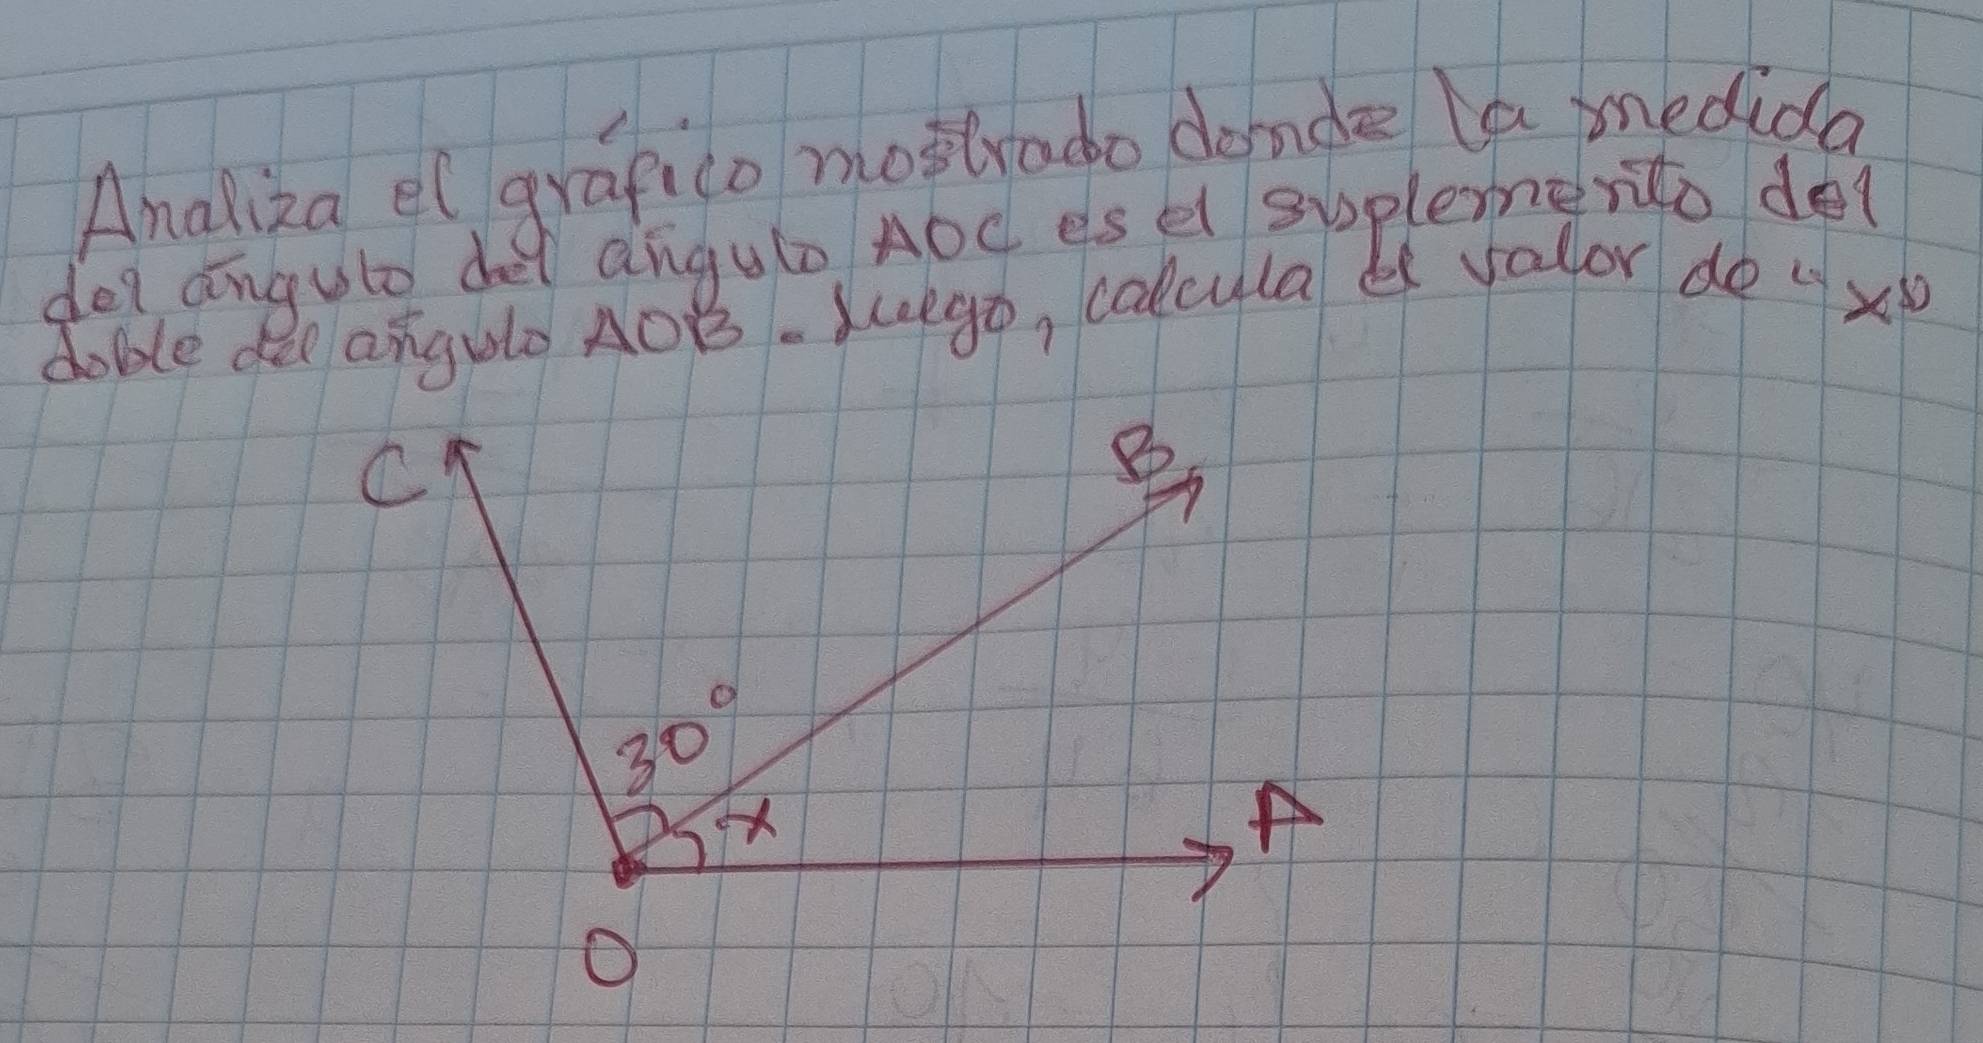 Analiza el gráfico mostrado donde la medida
del ángulo del ángulo AOC es el suplemento del
doble del ángulo AOB. Luego, calcula el valor de "x"
C
B
30°
x
A
O